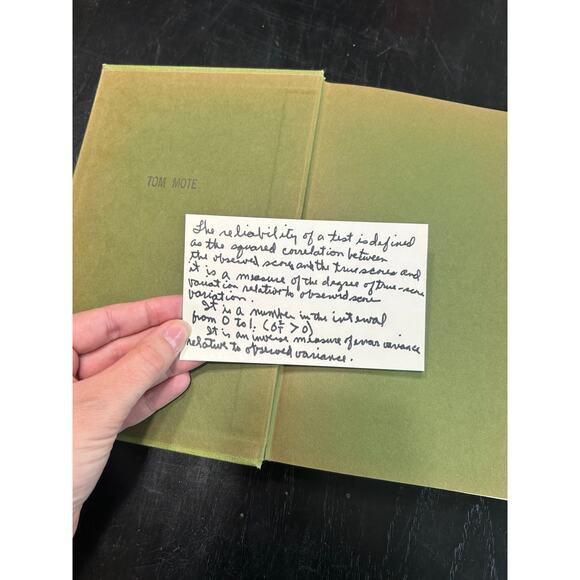 TOM MOTE
The reliability of a test is defined
as the squared correlation between
the observed scores and the true scores and
it is a measure of the degree of true-score
variation relative to observed score
variation.
It is a number in the interval
from 0 to 1. (σ²T > 0)
It is an inverse measure of error variance
relative to observed variance.